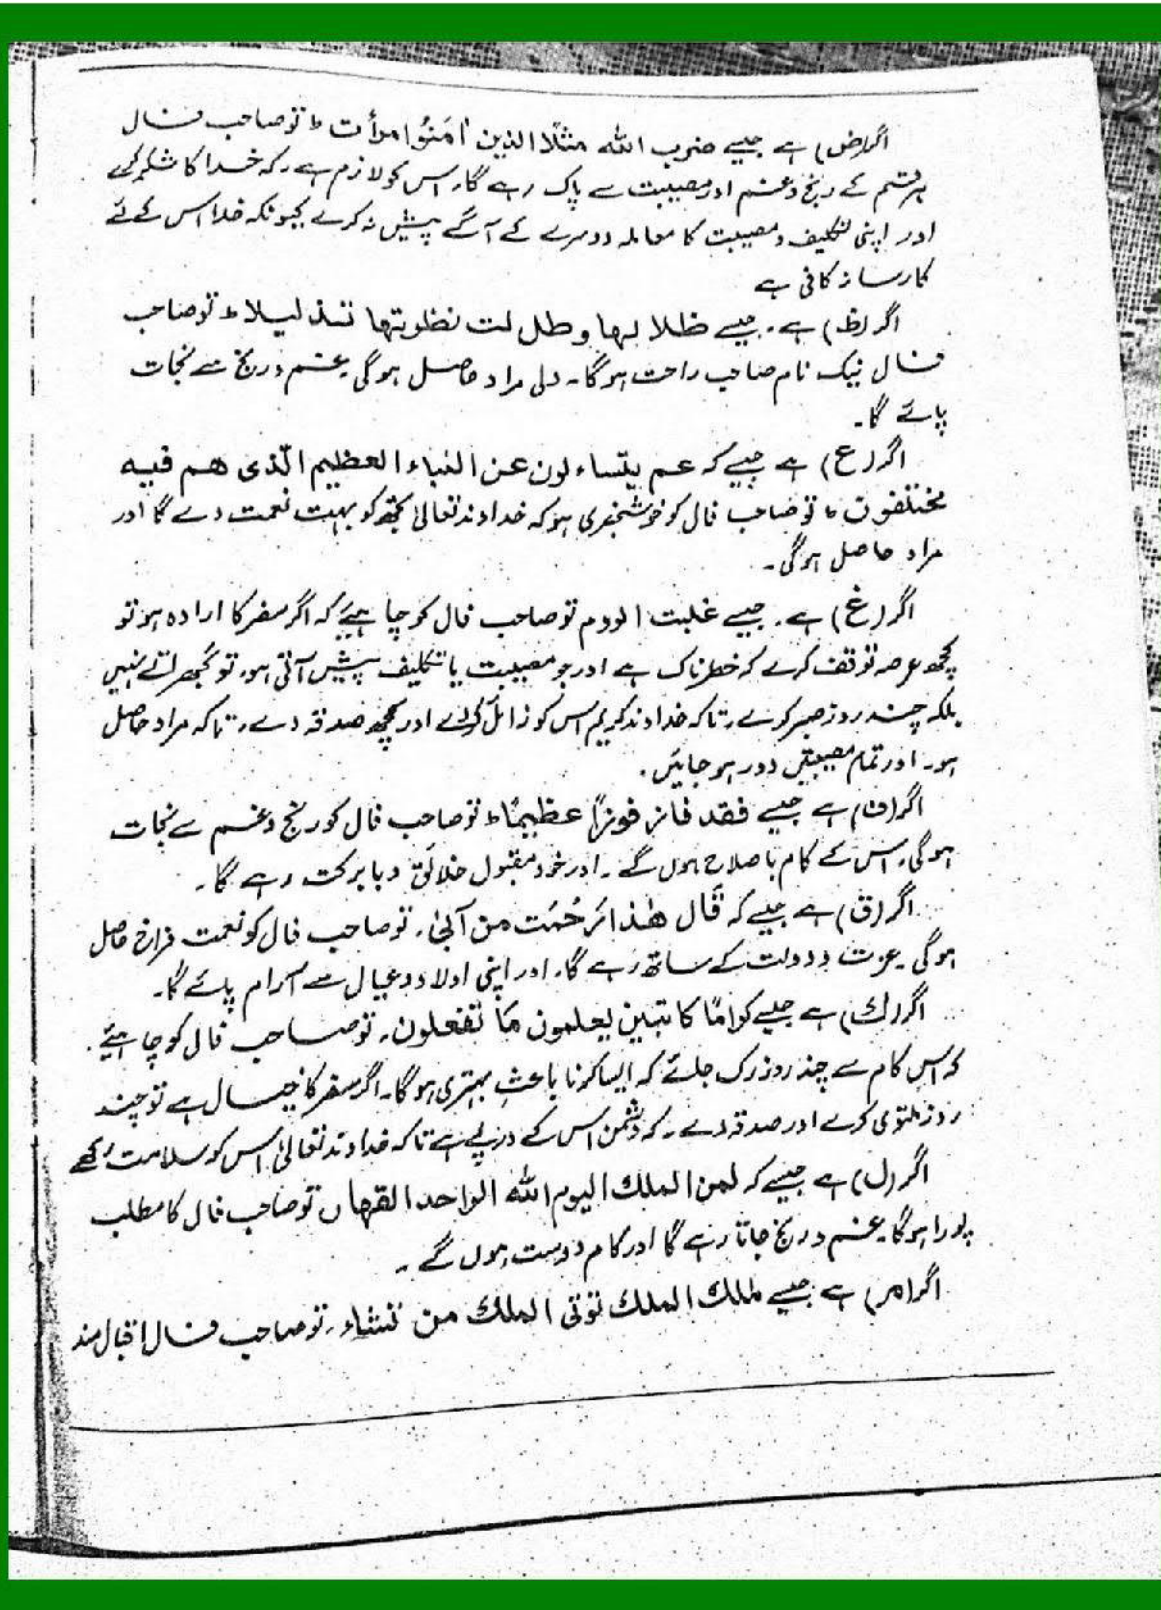 اگر (ض) ہے جیسے ضرب اللہ مثلًا الذین اٰمَنُوا امرأت ط تو صاحب فال
ہر قسم کے رنج و غم اور مصیبت سے پاک رہے گا، اس کو لازم ہے، کہ خدا کا شکر کرے
اور اپنی تکلیف و مصیبت کا معاملہ دوسرے کے آگے پیش نہ کرے کیونکہ خدا اس کے لئے
کارساز کافی ہے
اگر (ظ) ہے۔ جیسے ظلالہا و طللت نظوبتھا تذلیلا ط تو صاحب
فال نیک نام صاحب راحت ہوگا۔ دلی مراد حاصل ہوگی۔ غم و رنج سے نجات
پائے گا۔
اگر (ع) ہے جیسے کہ عم یتساءلون عن النباء العظیم الّذی ھم فیہ
مختلفون ط تو صاحب فال کو خوشخبری ہو کہ خداوند تعالیٰ تجھ کو بہت نعمت دے گا اور
مراد حاصل ہوگی۔
اگر (غ) ہے۔ جیسے غلبت الووم تو صاحب فال کو چاہیئے کہ اگر سفر کا ارادہ ہو تو
کچھ عرصہ توقف کرے کہ خطرناک ہے اور جو مصیبت یا تکلیف پیش آتی ہو، تو گھبرائے نہیں
بلکہ چند روز صبر کرے، تاکہ خداوند کریم اس کو زائل کرے اور کچھ صدقہ دے، تاکہ مراد حاصل
ہو۔ اور تمام مصیبتیں دور ہو جائیں۔
اگر (ف) ہے جیسے فقد فاز فوزًا عظیمًا ط تو صاحب فال کو رنج و غم سے نجات
ہوگی، اس کے کام با صلاح ہوں گے۔ اور خود مقبول خلائق و بابرکت رہے گا۔
اگر (ق) ہے جیسے کہ قَال ھٰذا رَحُمَت من آبیٰ، تو صاحب فال کو نعمت فراخ حاصل
ہوگی۔ عزت و دولت کے ساتھ رہے گا، اور اپنی اولاد و عیال سے آرام پائے گا۔
اگر (ک) ہے جیسے کرامًا کاتبین یعلمون مَا تفعلون، تو صاحب فال کو چاہیئے۔
کہ اس کام سے چند روز رک جائے کہ ایسا کرنا باعثِ بہتری ہوگا۔ اگر سفر کا خیال ہے تو چند
روز ملتوی کرے اور صدقہ دے، کہ دشمن اس کے درپے ہے تاکہ خداوند تعالیٰ اس کو سلامت رکھے
اگر (ل) ہے جیسے کہ لمن الملک الیوم اللہ الواحد القھار تو صاحب فال کا مطلب
پورا ہوگا۔ غم و رنج جاتا رہے گا اور کام درست ہوں گے۔
اگر (م) ہے جیسے مٰلک الملک توتی الملک من تشاء، تو صاحب فال اقبال مند